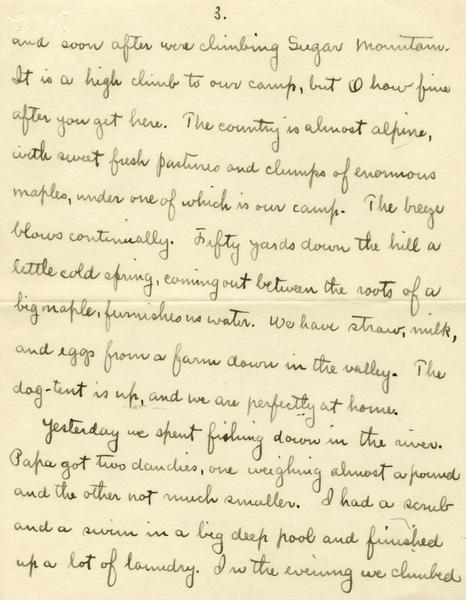 3.
and soon after were climbing Sugar Mountain.
It is a high climb to our camp, but O how fine
after you get here. The country is almost alpine,
with sweet fresh pastures and clumps of enormous
maples, under one of which is our camp. The breeze
blows continually. Fifty yards down the hill a
little cold spring, coming out between the roots of a
big maple, furnishes us water. We have straw, milk,
and eggs from a farm down in the valley. The
dog-tent is up, and we are perfectly at home.
Yesterday we spent fishing down in the river.
Papa got two dandies, one weighing almost a pound
and the other not much smaller. I had a scrub
and a swim in a big deep pool and finished
up a lot of laundry. In the evening we climbed